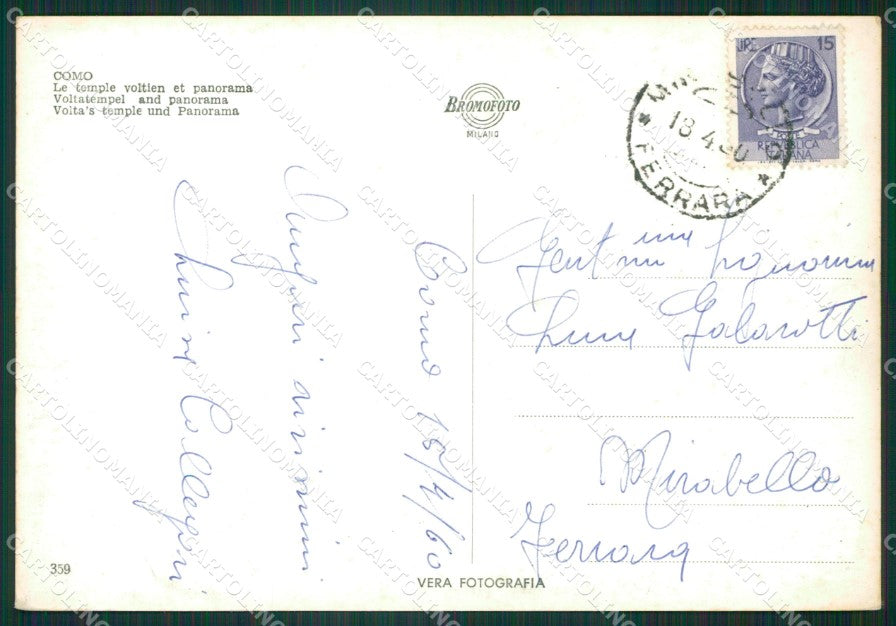 COMO
Le temple voltien et panorama
Voltatémpel and panorama
Volta's temple und Panorama
BROMOFOTO
MILANO
LIRE 15
REPUBBLICA
ITALIANA
18.4.60
FERRARA
Como 15/4/60
Auguri vivissimi
Luisa Collegari
Gent.ma Signorina
Galavotti
Mirabello
Ferrara
359
VERA FOTOGRAFIA
CARTOLINOMANIA